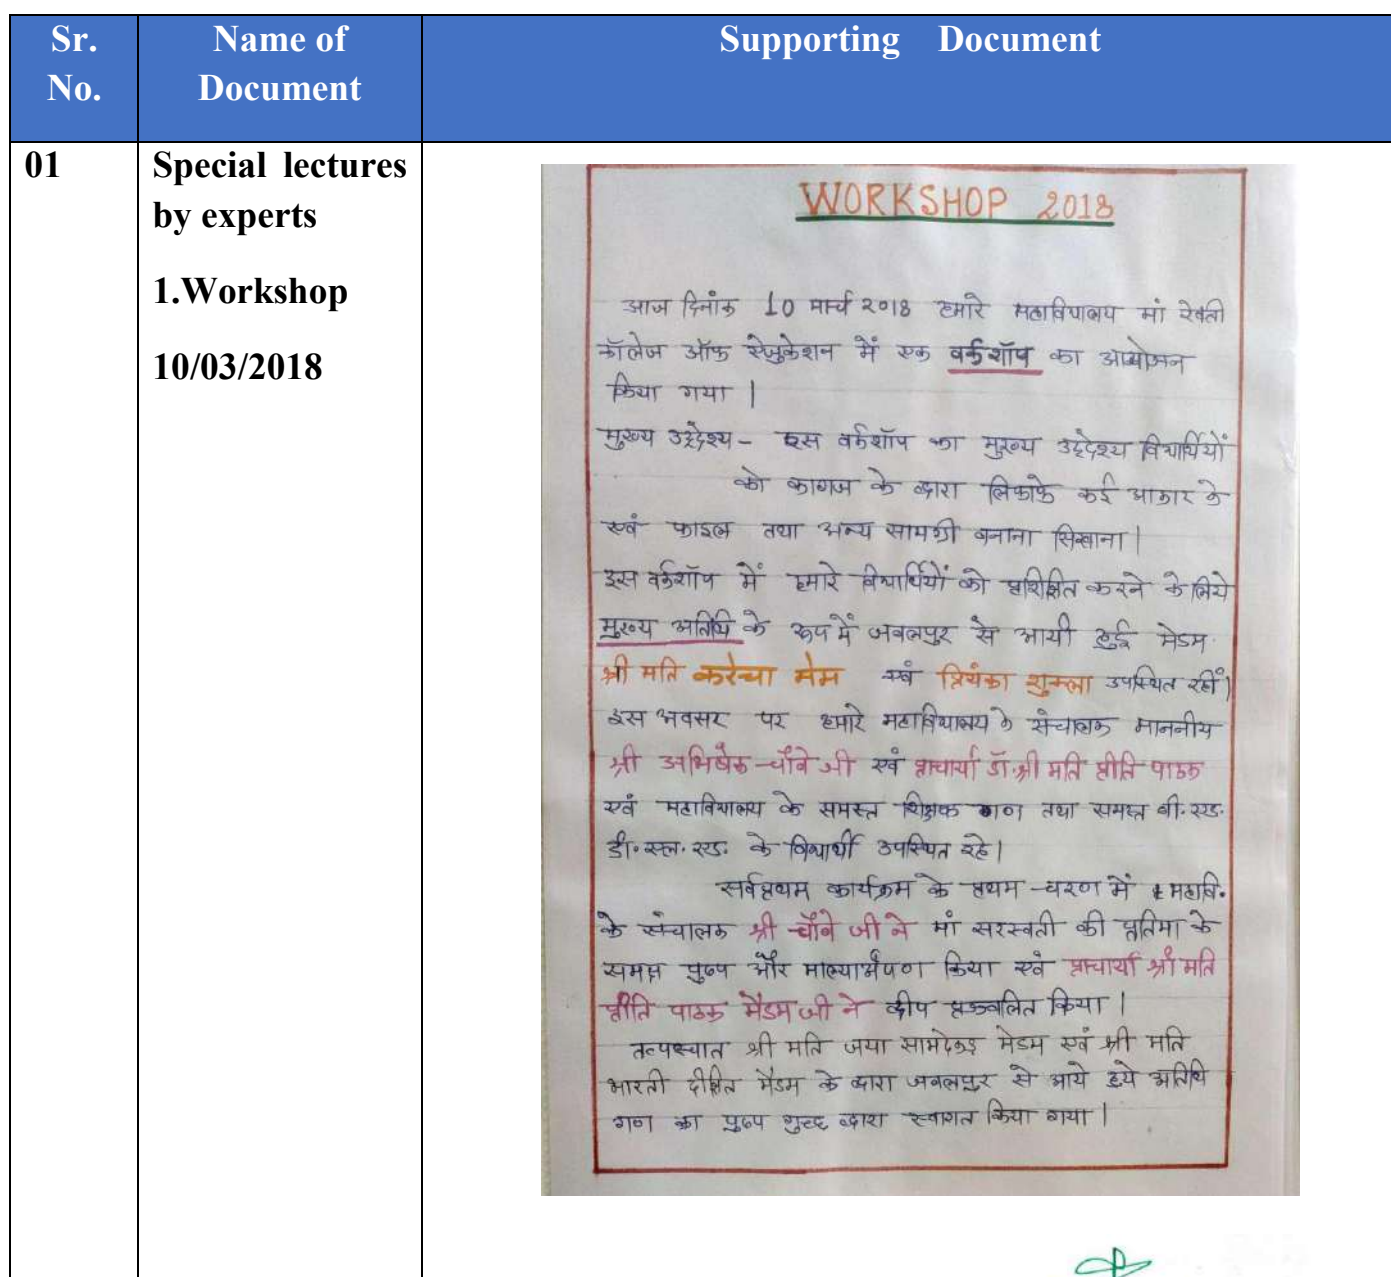 Sr. No.
Name of Document
Supporting Document
01
Special lectures
by experts
1.Workshop
10/03/2018
WORKSHOP 2018
आज दिनांक 10 मार्च २०18 हमारे महाविद्यालय मां रेवती
कॉलेज ऑफ ऐजुकेशन में एक वर्कशॉप का आयोजन
किया गया |
मुख्य उद्देश्य - इस वर्कशॉप का मुख्य उद्देश्य विद्यार्थियों
को कागज के द्वारा लिफाफे कई आकार के
एवं फाइल तथा अन्य सामग्री बनाना सिखाना |
इस वर्कशॉप में हमारे विद्यार्थियों को प्रशिक्षित करने के लिये
मुख्य अतिथि के रूप में जबलपुर से आयी हुई मेडम
श्री मति करेचा मेम एवं प्रियंका शुक्ला उपस्थित रहीं |
इस अवसर पर हमारे महाविद्यालय के संचालक माननीय
श्री अभिषेक चौबे जी एवं प्राचार्या डॉ. श्री मति प्रीति पाठक
एवं महाविद्यालय के समस्त शिक्षक गण तथा समस्त बी. एड.
डी. एल. एड. के विद्यार्थी उपस्थित रहे |
सर्वप्रथम कार्यक्रम के प्रथम चरण में महावि.
के संचालक श्री चौबे जी ने मां सरस्वती की प्रतिमा के
समक्ष पुष्प और माल्यार्पण किया एवं प्राचार्या श्री मति
प्रीति पाठक मैडम जी ने दीप प्रज्वलित किया |
तत्पश्चात श्री मति जया मेडम एवं श्री मति
भारती दीक्षित मैडम के द्वारा जबलपुर से आये हुये अतिथि
गण का पुष्प गुच्छ द्वारा स्वागत किया गया |